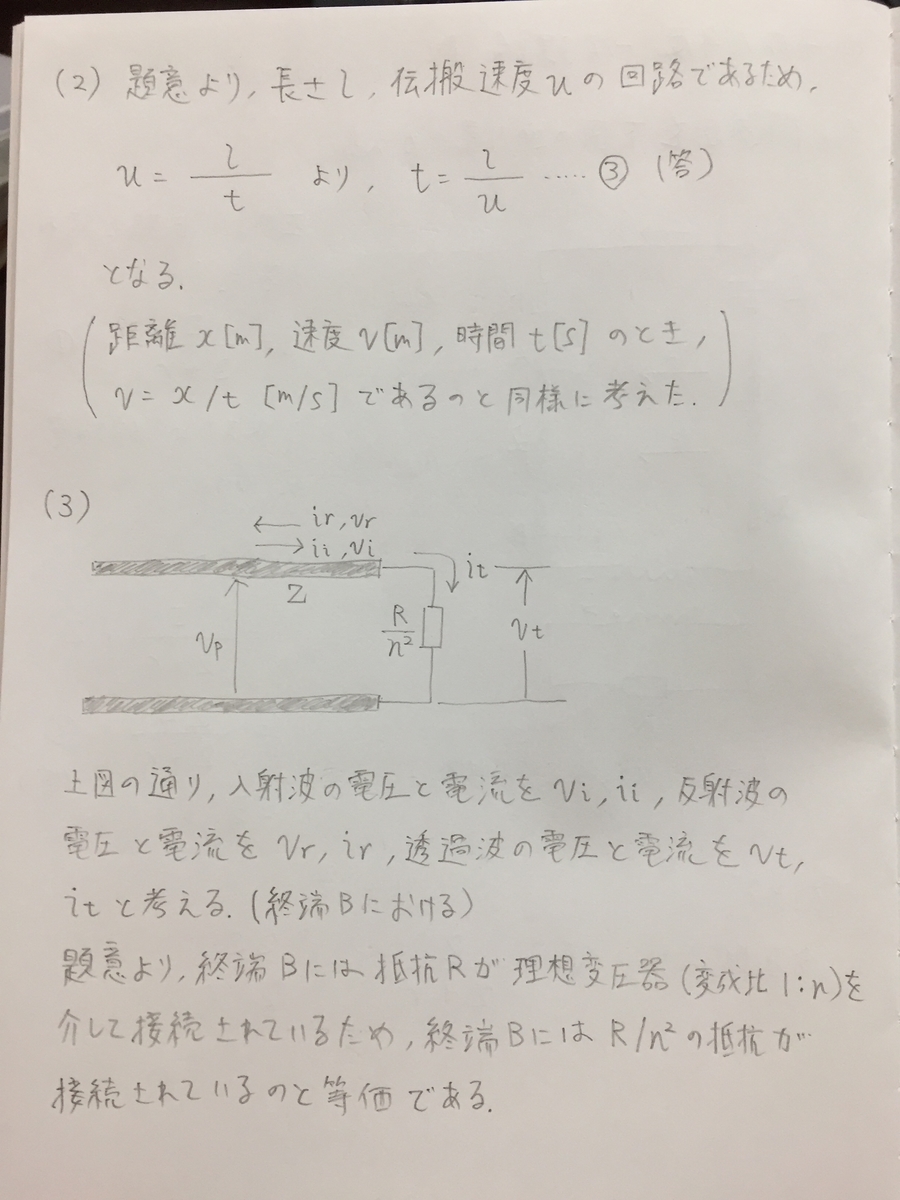 (2) 題意より, 長さ l, 伝搬速度 u の回路であるため,
u = l / t より, t = l / u ..... ③ (答)
となる.
距離 x [m], 速度 v [m], 時間 t [s] のとき,
v = x / t [m/s] であるのと同様に考えた.
(3)
ir, vr
ii, vi
it
Z
R / n²
vp
vt
上図の通り, 入射波の電圧と電流を vi, ii, 反射波の
電圧と電流を vr, ir, 透過波の電圧と電流を vt,
it と考える. (終端 B における)
題意より, 終端 B には抵抗 R が理想変圧器 (変成比 1:n) を
介して接続されているため, 終端 B には R/n² の抵抗が
接続されているのと等価である.